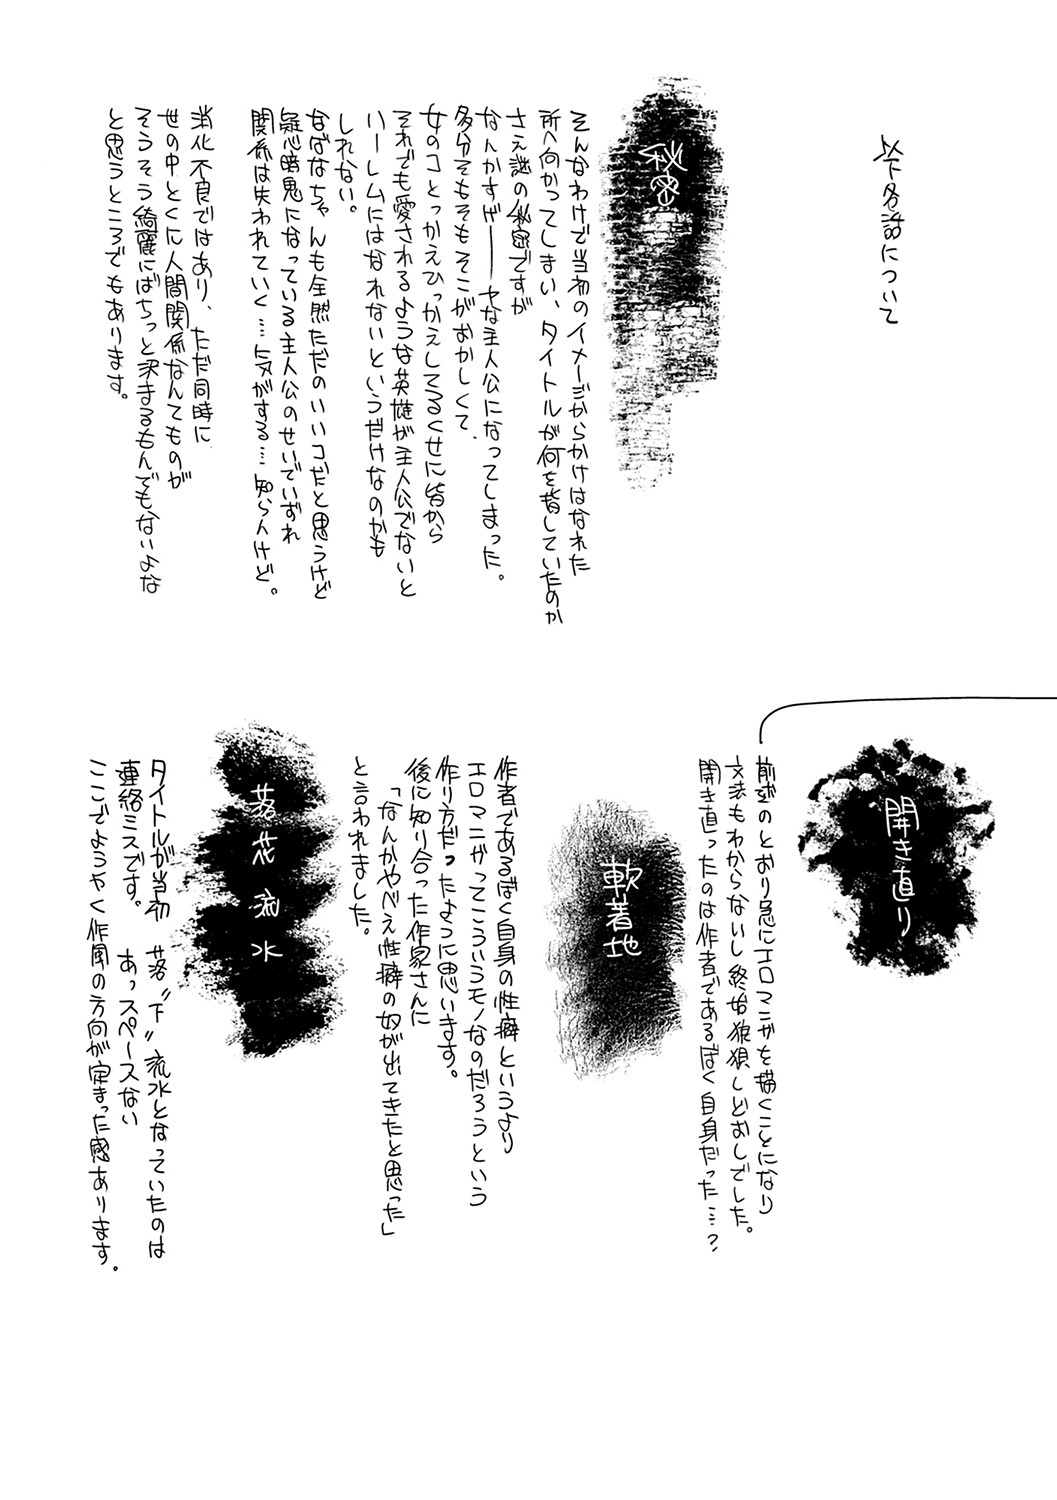 以下各話について
秘密
そんなわけで当初のイメージからかけはなれた
所へ向かってしまい、タイトルが何を指していたのか
さえ謎の秘密ですが
なんかすげーーヤな主人公になってしまった。
多分そもそもそこがおかしくて、
女のコとっかえひっかえしてるくせに皆から
それでも愛されるような英雄が主人公でないと
ハーレムにはなれないというだけなのかも
しれない。
なばなちゃんも全然ただのいいコだと思うけど
疑心暗鬼になっている主人公のせいでいずれ
関係は失われていく…気がする…知らんけど。
消化不良ではあり、ただ同時に
世の中とくに人間関係なんてものが
そうそう綺麗にばちっと決まるもんでもないよな
と思うところでもあります。
開き直り
前述のとおり急にエロマンガを描くことになり
文法もわからないし終始狼狽しどおしでした。
開き直ったのは作者であるぼく自身だった…?
軟着地
作者であるぼく自身の性癖というより
エロマンガってこういうモノなのだろうという
作り方だったように思います。
後に知り合った作家さんに
「なんかやべえ性癖の奴が出てきたと思った」
と言われました。
落花流水
タイトルが当初 落〝下〟流水となっていたのは
連絡ミスです。 あっスペースない
ここでようやく作風の方向が定まった感あります。